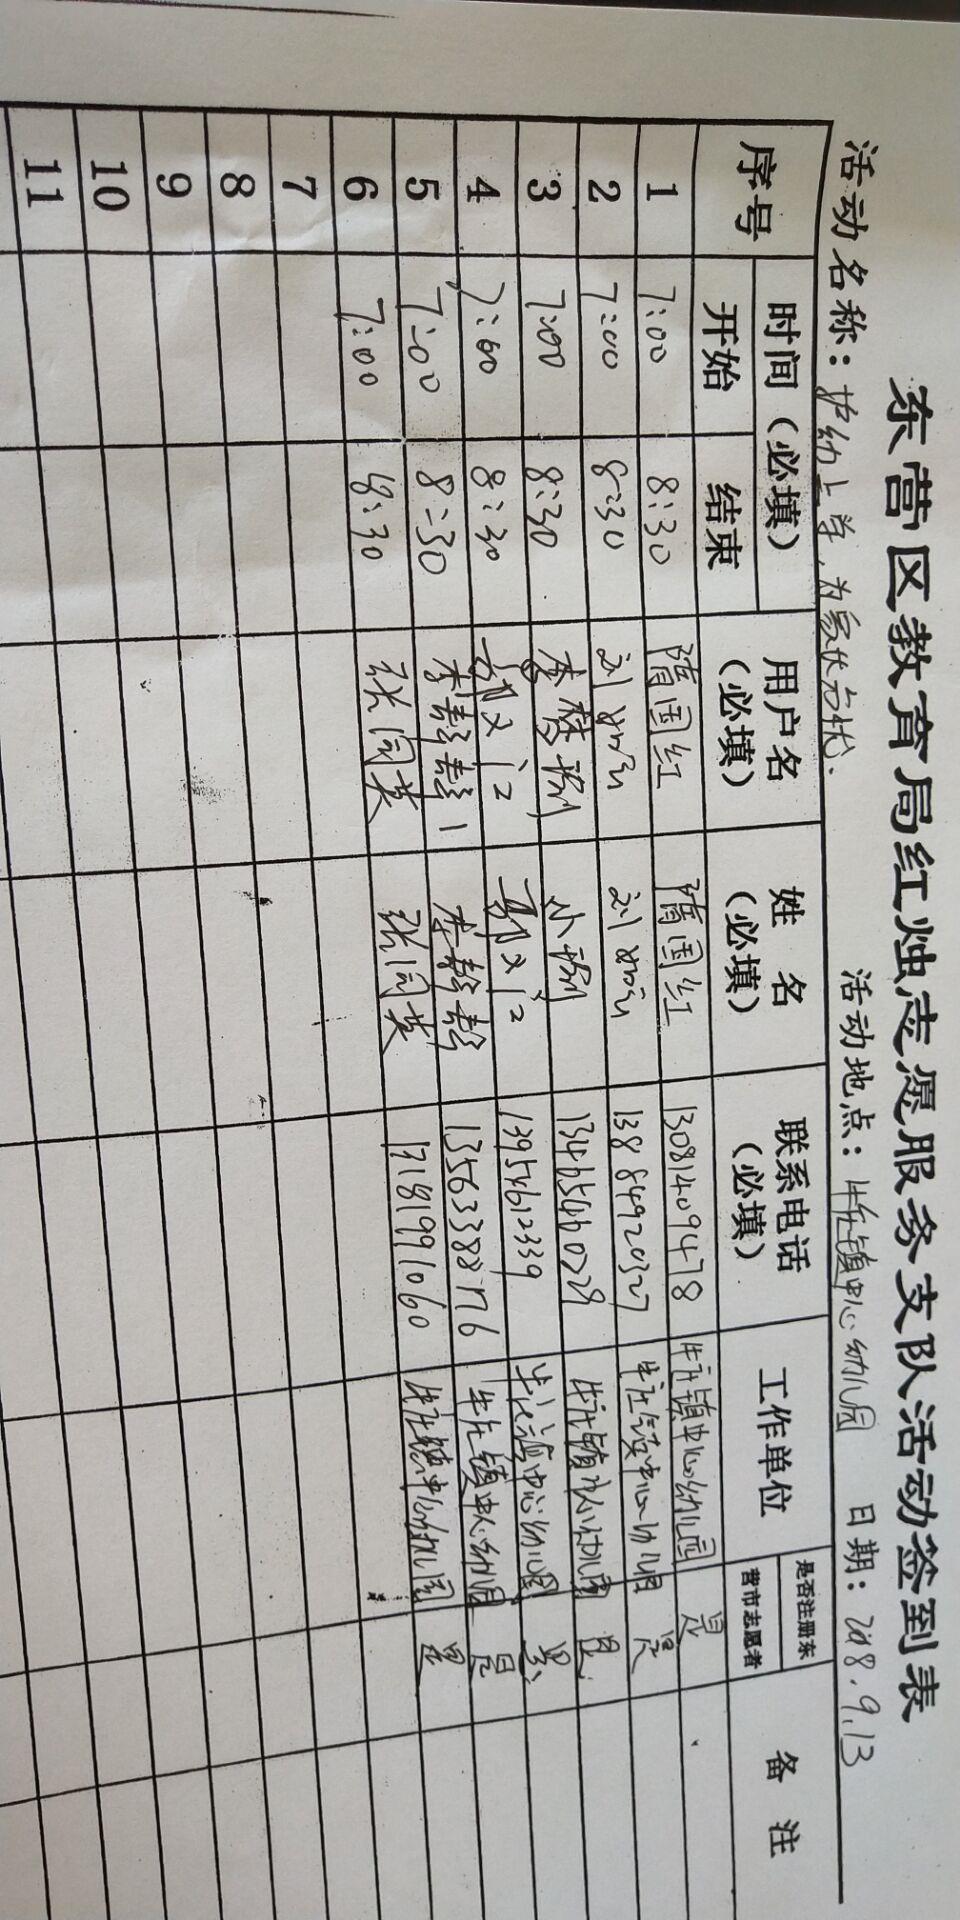 东营区教育局红烛志愿服务支队活动签到表
活动名称：护幼上学，为家长分忧. 活动地点：牛庄镇中心幼儿园 日期：2018.9.13
序号 时间（必填） 用户名（必填） 姓名（必填） 联系电话（必填） 工作单位 是否注册东营市志愿者 备注
开始 结束
1 7:00 8:30 隋国红 隋国红 13081409478 牛庄镇中心幼儿园 是
2 7:00 8:30 刘 刘 13884920527 牛庄镇中心幼儿园 是
3 7:00 8:30 牛庄镇中心幼儿园 是
4 7:00 8:30 郭 郭 13954612339 牛庄镇中心幼儿园 是
5 7:00 8:30 李 李 13563388176 牛庄镇中心幼儿园 是
6 7:00 8:30 张闫英 张闫英 13181991060 牛庄镇中心幼儿园 是
7
8
9
10
11